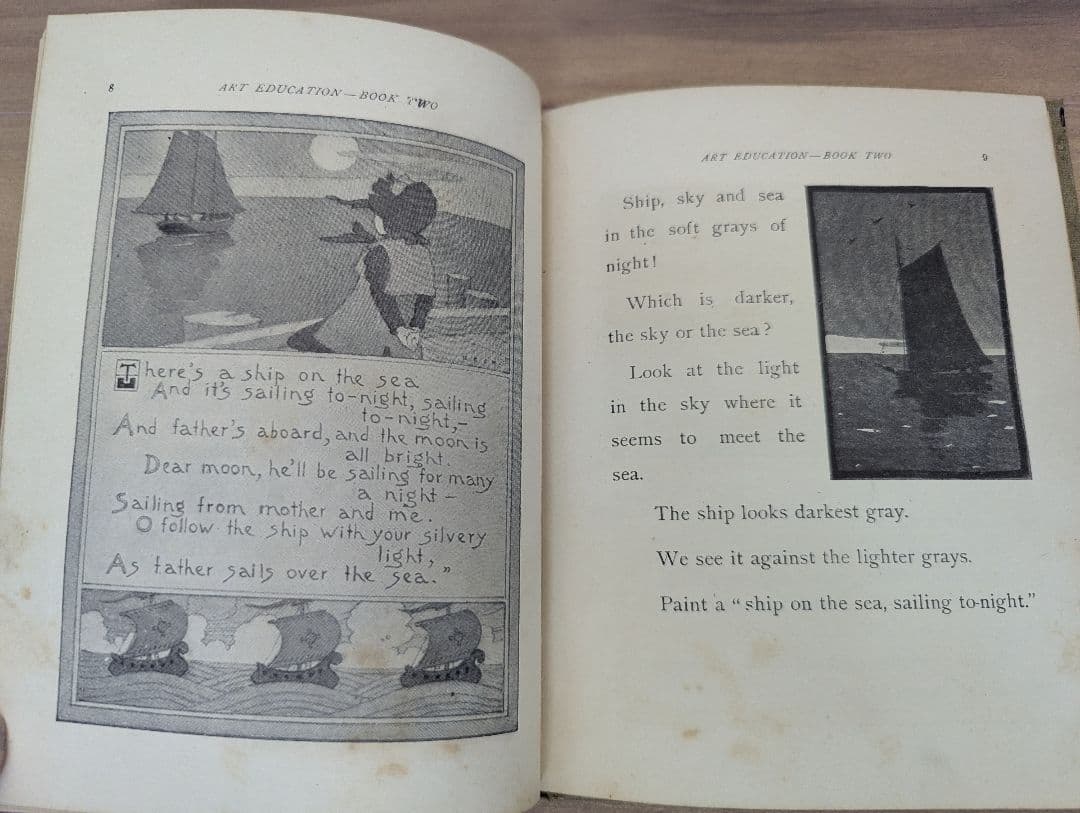 8
ART EDUCATION—BOOK TWO
There's a ship on the sea
And it's sailing to-night, sailing
to-night,-
And father's aboard, and the moon is
all bright.
Dear moon, he'll be sailing for many
a night -
Sailing from mother and me.
O follow the ship with your silvery
light,
As father sails over the sea."
ART EDUCATION—BOOK TWO
9
Ship, sky and sea
in the soft grays of
night!
Which is darker,
the sky or the sea?
Look at the light
in the sky where it
seems to meet the
sea.
The ship looks darkest gray.
We see it against the lighter grays.
Paint a “ship on the sea, sailing to-night.”